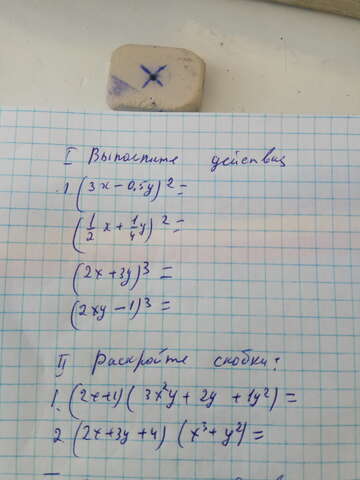 I Выполните действия
1 (3x - 0,5y)² =
(1/2 x + 1/4 y)² =
(2x + 3y)³ =
(2xy - 1)³ =
II Раскройте скобки:
1. (2x+1)(3x²y + 2y + 1y²) =
2 (2x + 3y + 4) (x³ + y²) =